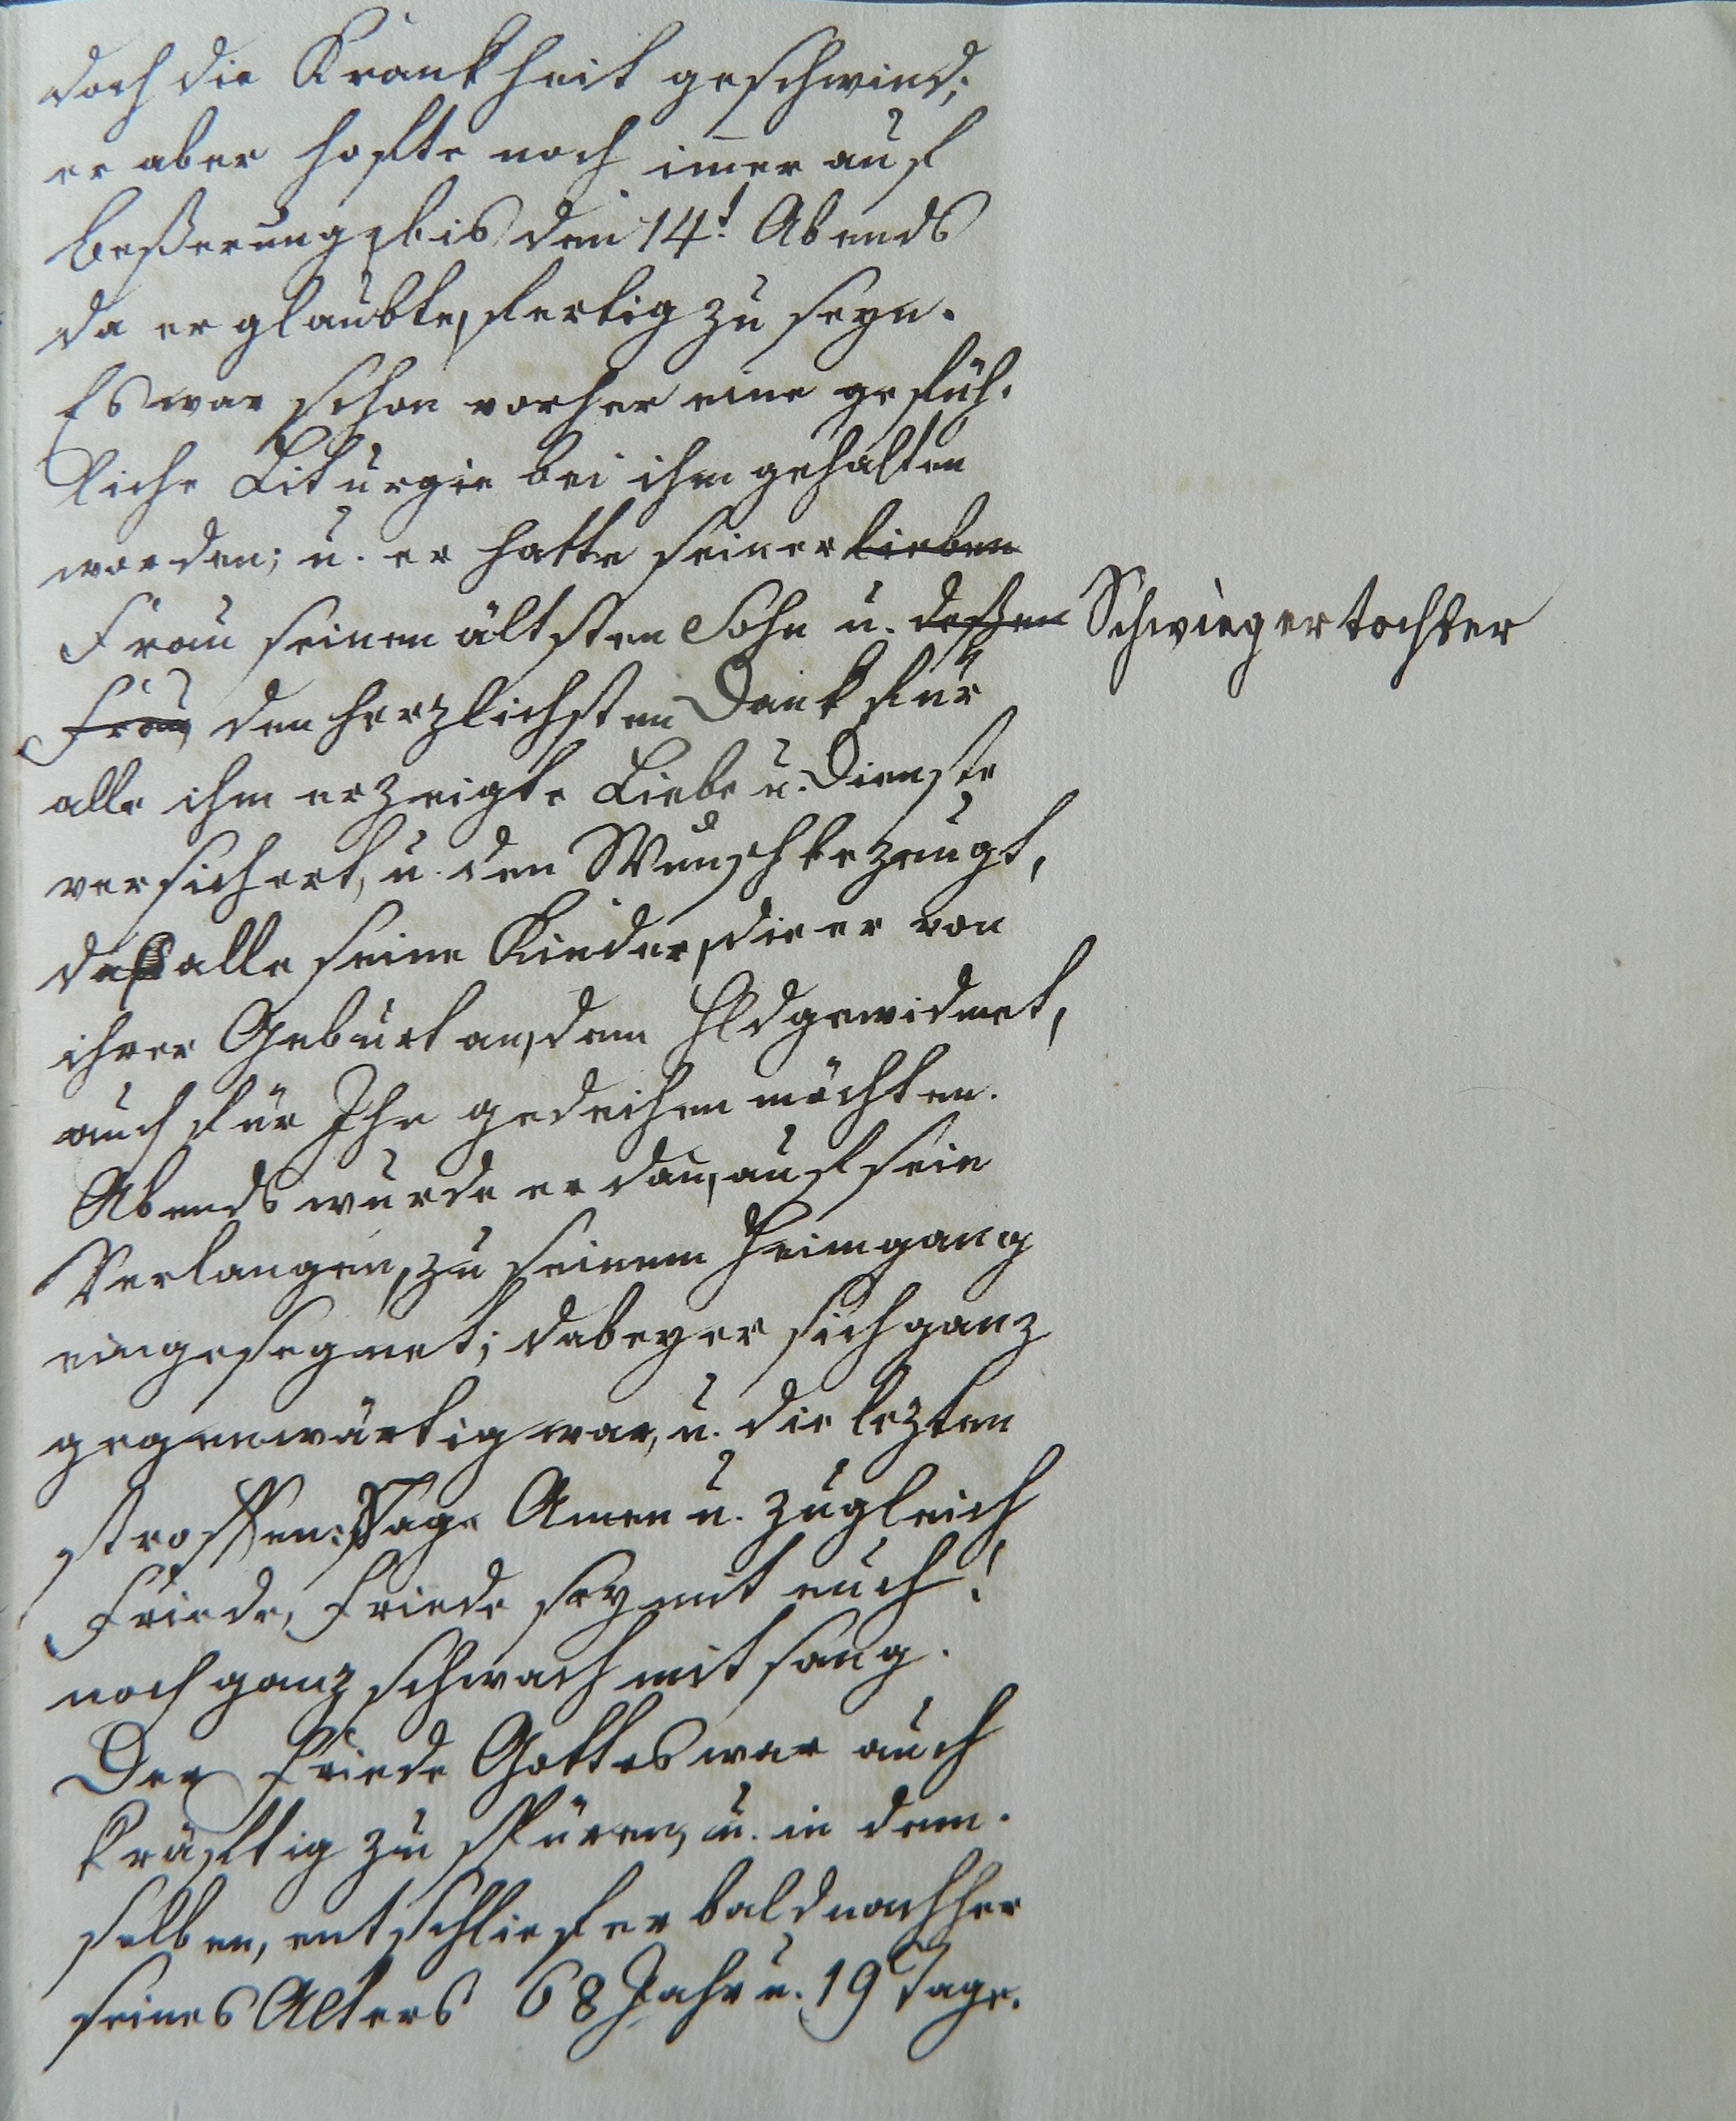 doch die Krankheit geschwind;
er aber hofte noch im̅er auf
Beßerung, bis den 14t. Abends
da er glaubte, fertig zu seyn.
Es war schon vorher eine gefüh-
liche Liturgie bei ihm gehalten
worden; u. er hatte seiner lieben
Frau seinem ältsten Sohn u. deßen Schwiegertochter
Frau, den herzlichsten Dank für
alle ihm erzeigte Liebe u. Dienste
versichert, u. den Wunsch bezeugt,
daß alle seine Kinder, die er von
ihrer Geburt an, dem Hld gewidmet,
auch für Ihn gedeihen möchten.
Abends wurde er dan̅, auf sein
Verlangen, zu seinem Heimgang
eingesegnet; dabey er sich ganz
gegenwärtig war, u. die lezten
Strophen: Sage Amen u. zugleich
Friede, Friede sey mit euch!
noch ganz schwach mit sang.
Der Friede Gottes war auch
kräftig zu spüren, u. in dem-
selben, entschlief er bald nachher
seines Alters 68 Jahr u. 19 Tage.